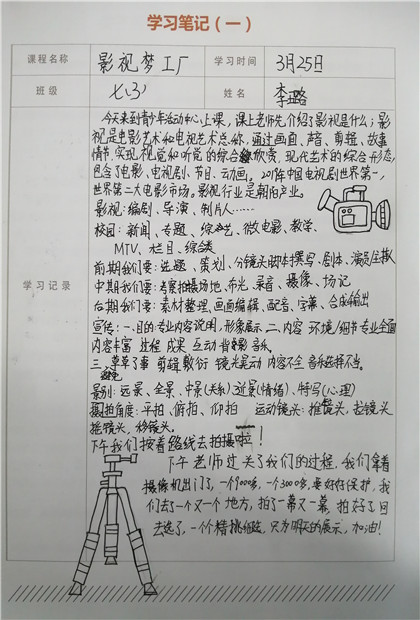 学习笔记（一）
课程名称 影视梦工厂 学习时间 3月25日
班级 七(3) 姓名 李璐
学习记录
今天来到青少年活动中心上课，课上老师先介绍了影视是什么；影
视是电影艺术和电视艺术总称，通过画面、声音、剪辑、故事
情节，实现视觉和听觉的综合欣赏，现代艺术的综合形态，
包含了电影、电视剧、节目、动画。2017年中国电视剧世界第一，
世界第二大电影市场。影视行业是朝阳产业。
影视：编剧、导演、制片人……
校园：新闻、专题、综艺、微电影、教学、
MTV、栏目、综合类
前期我们要：选题、策划、分镜头脚本撰写、剧本、演员
中期我们要：考察拍摄场地、布光、录音、摄像、场记
后期我们要：素材整理、画面编辑、配音、字幕、合成输出
宣传：一.目的专业内容说明，形象展示 二、内容 环境/细节专业全面
内容丰富 过程 成果 互动 背景 音乐
三、避免 草草了事 剪辑敷衍 镜头晃动 内容不全 音乐选择不当。
景别：远景、全景、中景(关系)近景(情绪)、特写(心理)
摄拍角度：平拍、俯拍、仰拍 运动镜头：推镜头，拉镜头
摇镜头，移镜头。
下午我们按着路线去拍摄啦！
下午老师过关了我们的过程，我们拿着
摄像机出门了，一个9000多，一个3000多，要好好保护，我
们去了一个又一个地方，拍了一幕又一幕，拍好了回
去选了，一个个精挑细选，只为明天的展示，加油！